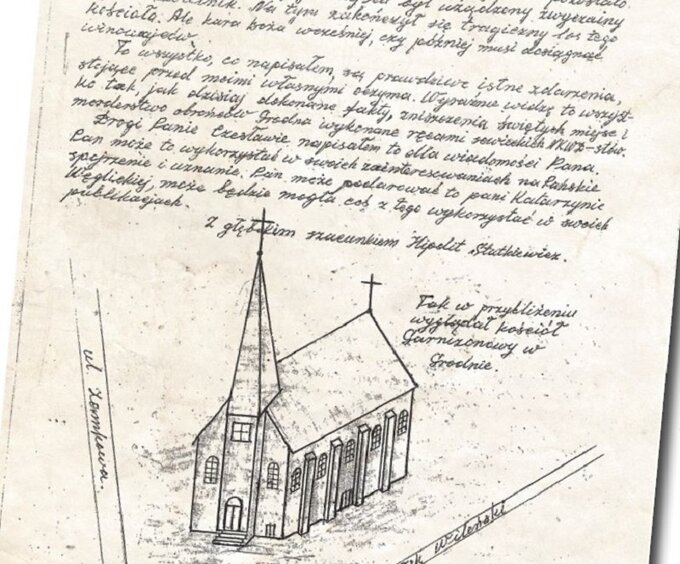 był urządzony zwyczajny
Na tym zakończył się tragiczny los tego
kościoła. Ale kara boża wcześniej, czy później musi dosięgnąć
winowajców.
To wszystko, co napisałem, są prawdziwe istne zdarzenia,
stojące przed moimi własnymi oczyma. Wyraźnie widzę to wszyst-
ko tak, jak dzisiaj dokonane fakty, zniszczenia świętych miejsc i
morderstwo obrońców Grodna wykonane rękami sowieckich NKWD-stów.
Drogi Panie Czesławie, napisałem to dla wiadomości Pana.
Pan może to wykorzystać w swoich zainteresowaniach na Pańskie
spojrzenie i uznanie. Pan może podarować to pani Katarzynie
Węglickiej, może będzie mogła coś z tego wykorzystać w swoich
publikacjach.
Z głębokim szacunkiem Hipolit Stutkiewicz.
Tak w przybliżeniu
wyglądał kościół
Garnizonowy w
Grodnie.
ul. Zamkowa.
Wileński